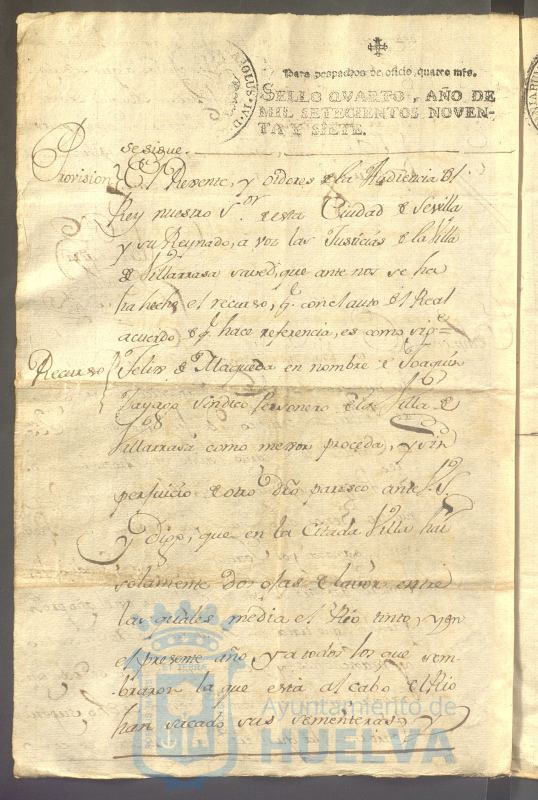 CAROLUS·IV·D·
Para despachos de oficio, quatro mrs.
SELLO QVARTO, AÑO DE
MIL SETECIENTOS NOVEN-
TA Y SIETE.
se sigue.
Provision
El Rexente, y oidores de la Audiencia del
Rey nuestro Sor. de esta Ciudad de Sevilla
y su Reynado, a vos las Justicias de la Villa
de Villarrasa saved, que ante nos se ha
ha hecho el recurso, q. con el auto del Real
acuerdo, de q. hace referencia, es como sigue=
Recurso
Felix de Maqueda en nombre de Joaquin
Tayago Sindico Personero de la Villa de
Villarrasa como mexor proceda, y sin
perjuicio de otro dro paresco ante V.S.
Y digo, que en la Citada Villa hai
solamente dos ojas de lavor entre
las quales media el Rio tinto, y en
el presente año ya todos los que sem-
braron la que está al cabo del Rio
han sacado sus sementeras, y
Ayuntamiento de
HUELVA